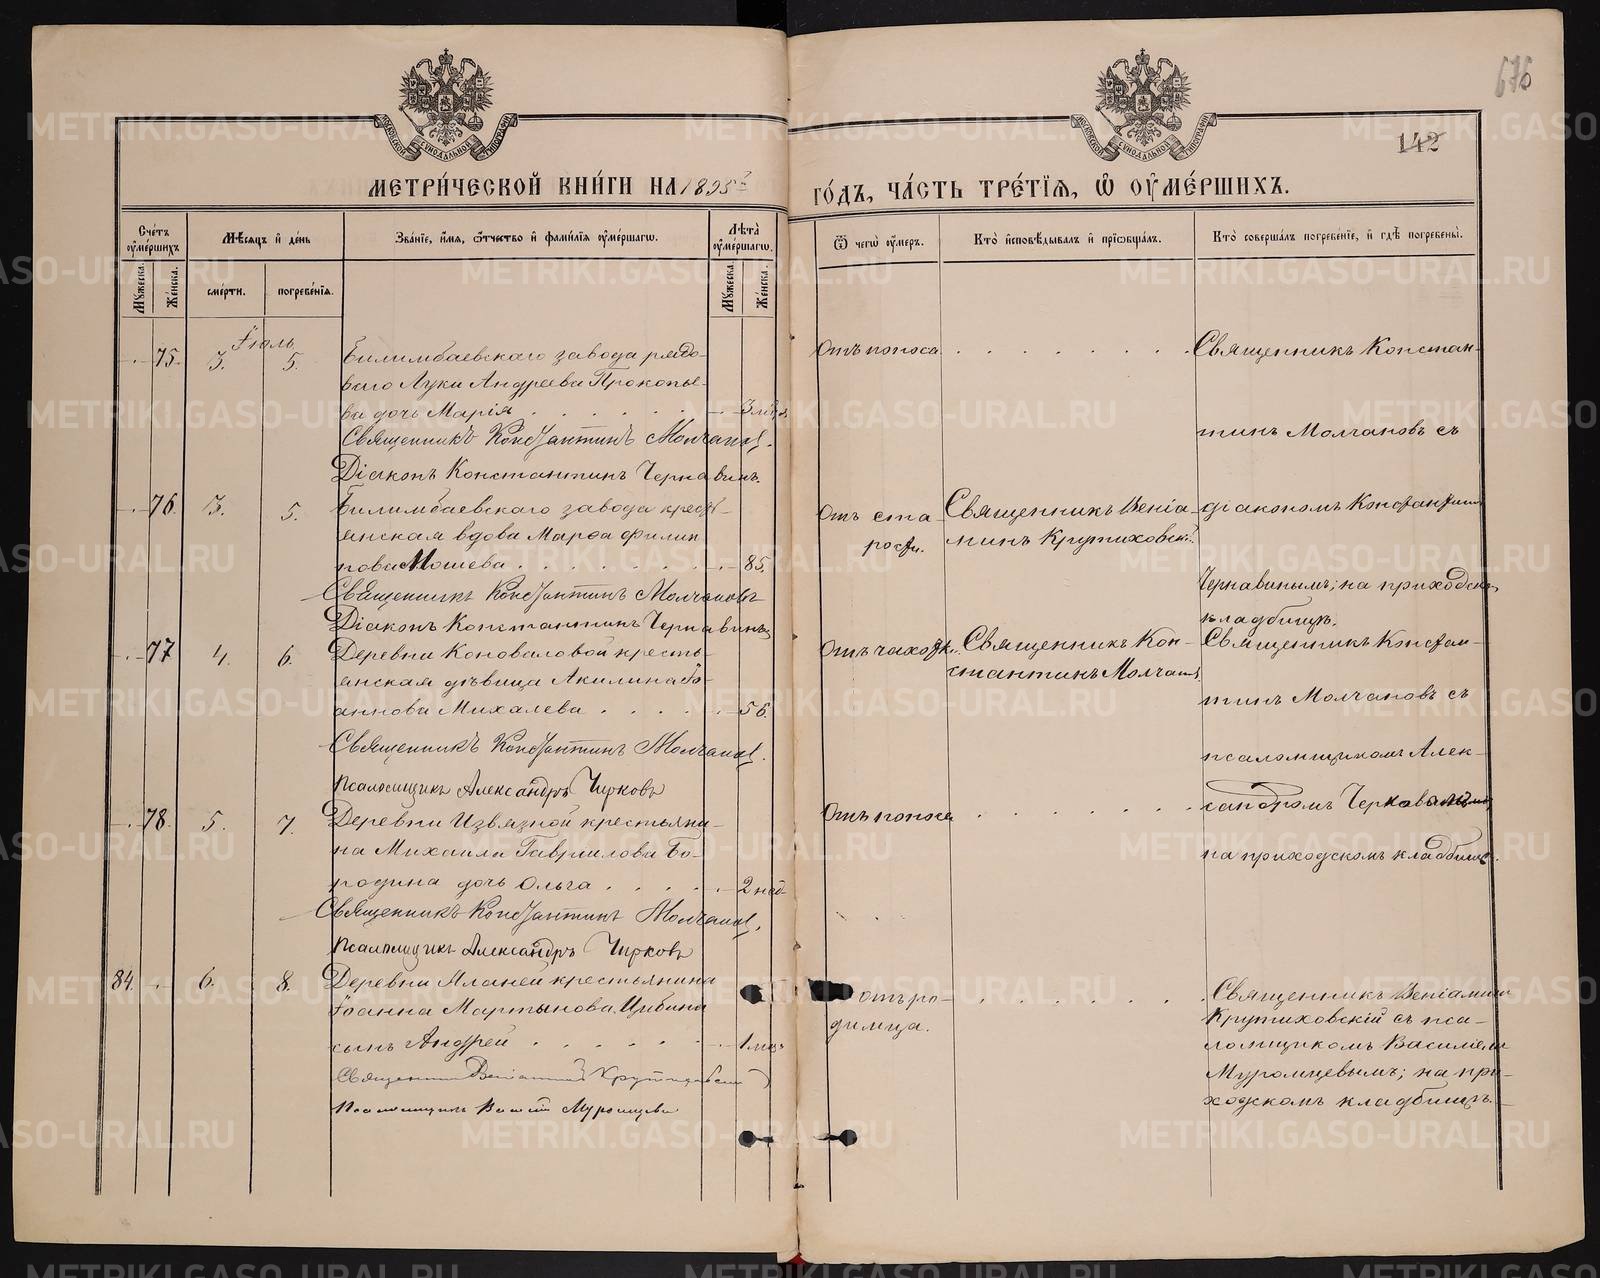 676
142
МЕТРИ́ЧЕСКОЙ КНИ́ГИ НА 1895 й
ГО́ДЪ, ЧА́СТЬ ТРЕ́ТІѦ, Ѡ҆ ОУ҆МЕ́РШИХЪ.
МОСКОВСКОЙ СѴНОДАЛЬНОЙ ТИПОГРАФІИ
МОСКОВСКОЙ СѴНОДАЛЬНОЙ ТИПОГРАФІИ
Сче́тъ оу҆ме́ршихъ
Мꙋ́жеска.
Же́нска.
Мѣ́сѧцъ и҆ де́нь
сме́рти.
погребе́нїѧ.
Зва́нїе, и҆́мѧ, ѻ҆́тчество и҆ фами́лїѧ оу҆ме́ршагѡ.
Лѣ́та оу҆ме́ршагѡ.
Мꙋ́жеска.
Же́нска.
Ѿ чегѡ̀ оу҆́меръ.
Кто̀ и҆сповѣ́дывалъ и҆ прїѡбща́лъ.
Кто̀ соверша́лъ погребе́нїе, и҆ гдѣ̀ погребены̀.
Іюль
75. 3. 5. Билимбаевскаго завода рядо-
ваго Луки Андреева Прокопье-
ва дочь Марія
Священникъ Константинъ Молчановъ.
Діаконъ Константинъ Чернавинъ.
Отъ поноса
Священникъ Констан-
тинъ Молчановъ съ
76. 3. 5. Билимбаевскаго завода кресть-
янская вдова Марѳа Филип
пова Мошева 85.
Священникъ Константинъ Молчановъ
Діаконъ Константинъ Чернавинъ
Отъ ста-
рости.
Священникъ Веніа-
минъ Крутиховскій.
діакономъ Константин
Чернавинымъ; на приходском
кладбищѣ.
77 4. 6. Деревни Коноваловой кресть-
янская дѣвица Акилина Іо-
аннова Михалева 56.
Священникъ Константинъ Молчановъ.
Псаломщикъ Александръ Чирковъ
Отъ чахотки.
Священникъ Кон-
стантинъ Молчановъ
Священникъ Констан-
тинъ Молчановъ съ
псаломщикомъ Алек-
сандромъ
на приходскомъ кладбищѣ.
78. 5. 7. Деревни Извязной крестьяни-
на Михаила Гавриилова Бо-
родина дочь Ольга 2 нед
Священникъ Константинъ Молчановъ.
Псаломщикъ Александръ Чирковъ
Отъ поноса
84. 6. 8. Деревни Аланей крестьянина
Іоанна Мартынова Цибина
сынъ Андрей 1 мѣс
Священникъ Веніаминъ Крутиховскій
Псаломщикъ Василій Муромцевъ
отъ ро-
димца.
Священникъ Веніамин
Крутиховскій съ пса-
ломщикомъ Василіемъ
Муромцевымъ; на при-
ходскомъ кладбищѣ.
METRIKI.GASO-URAL.RU